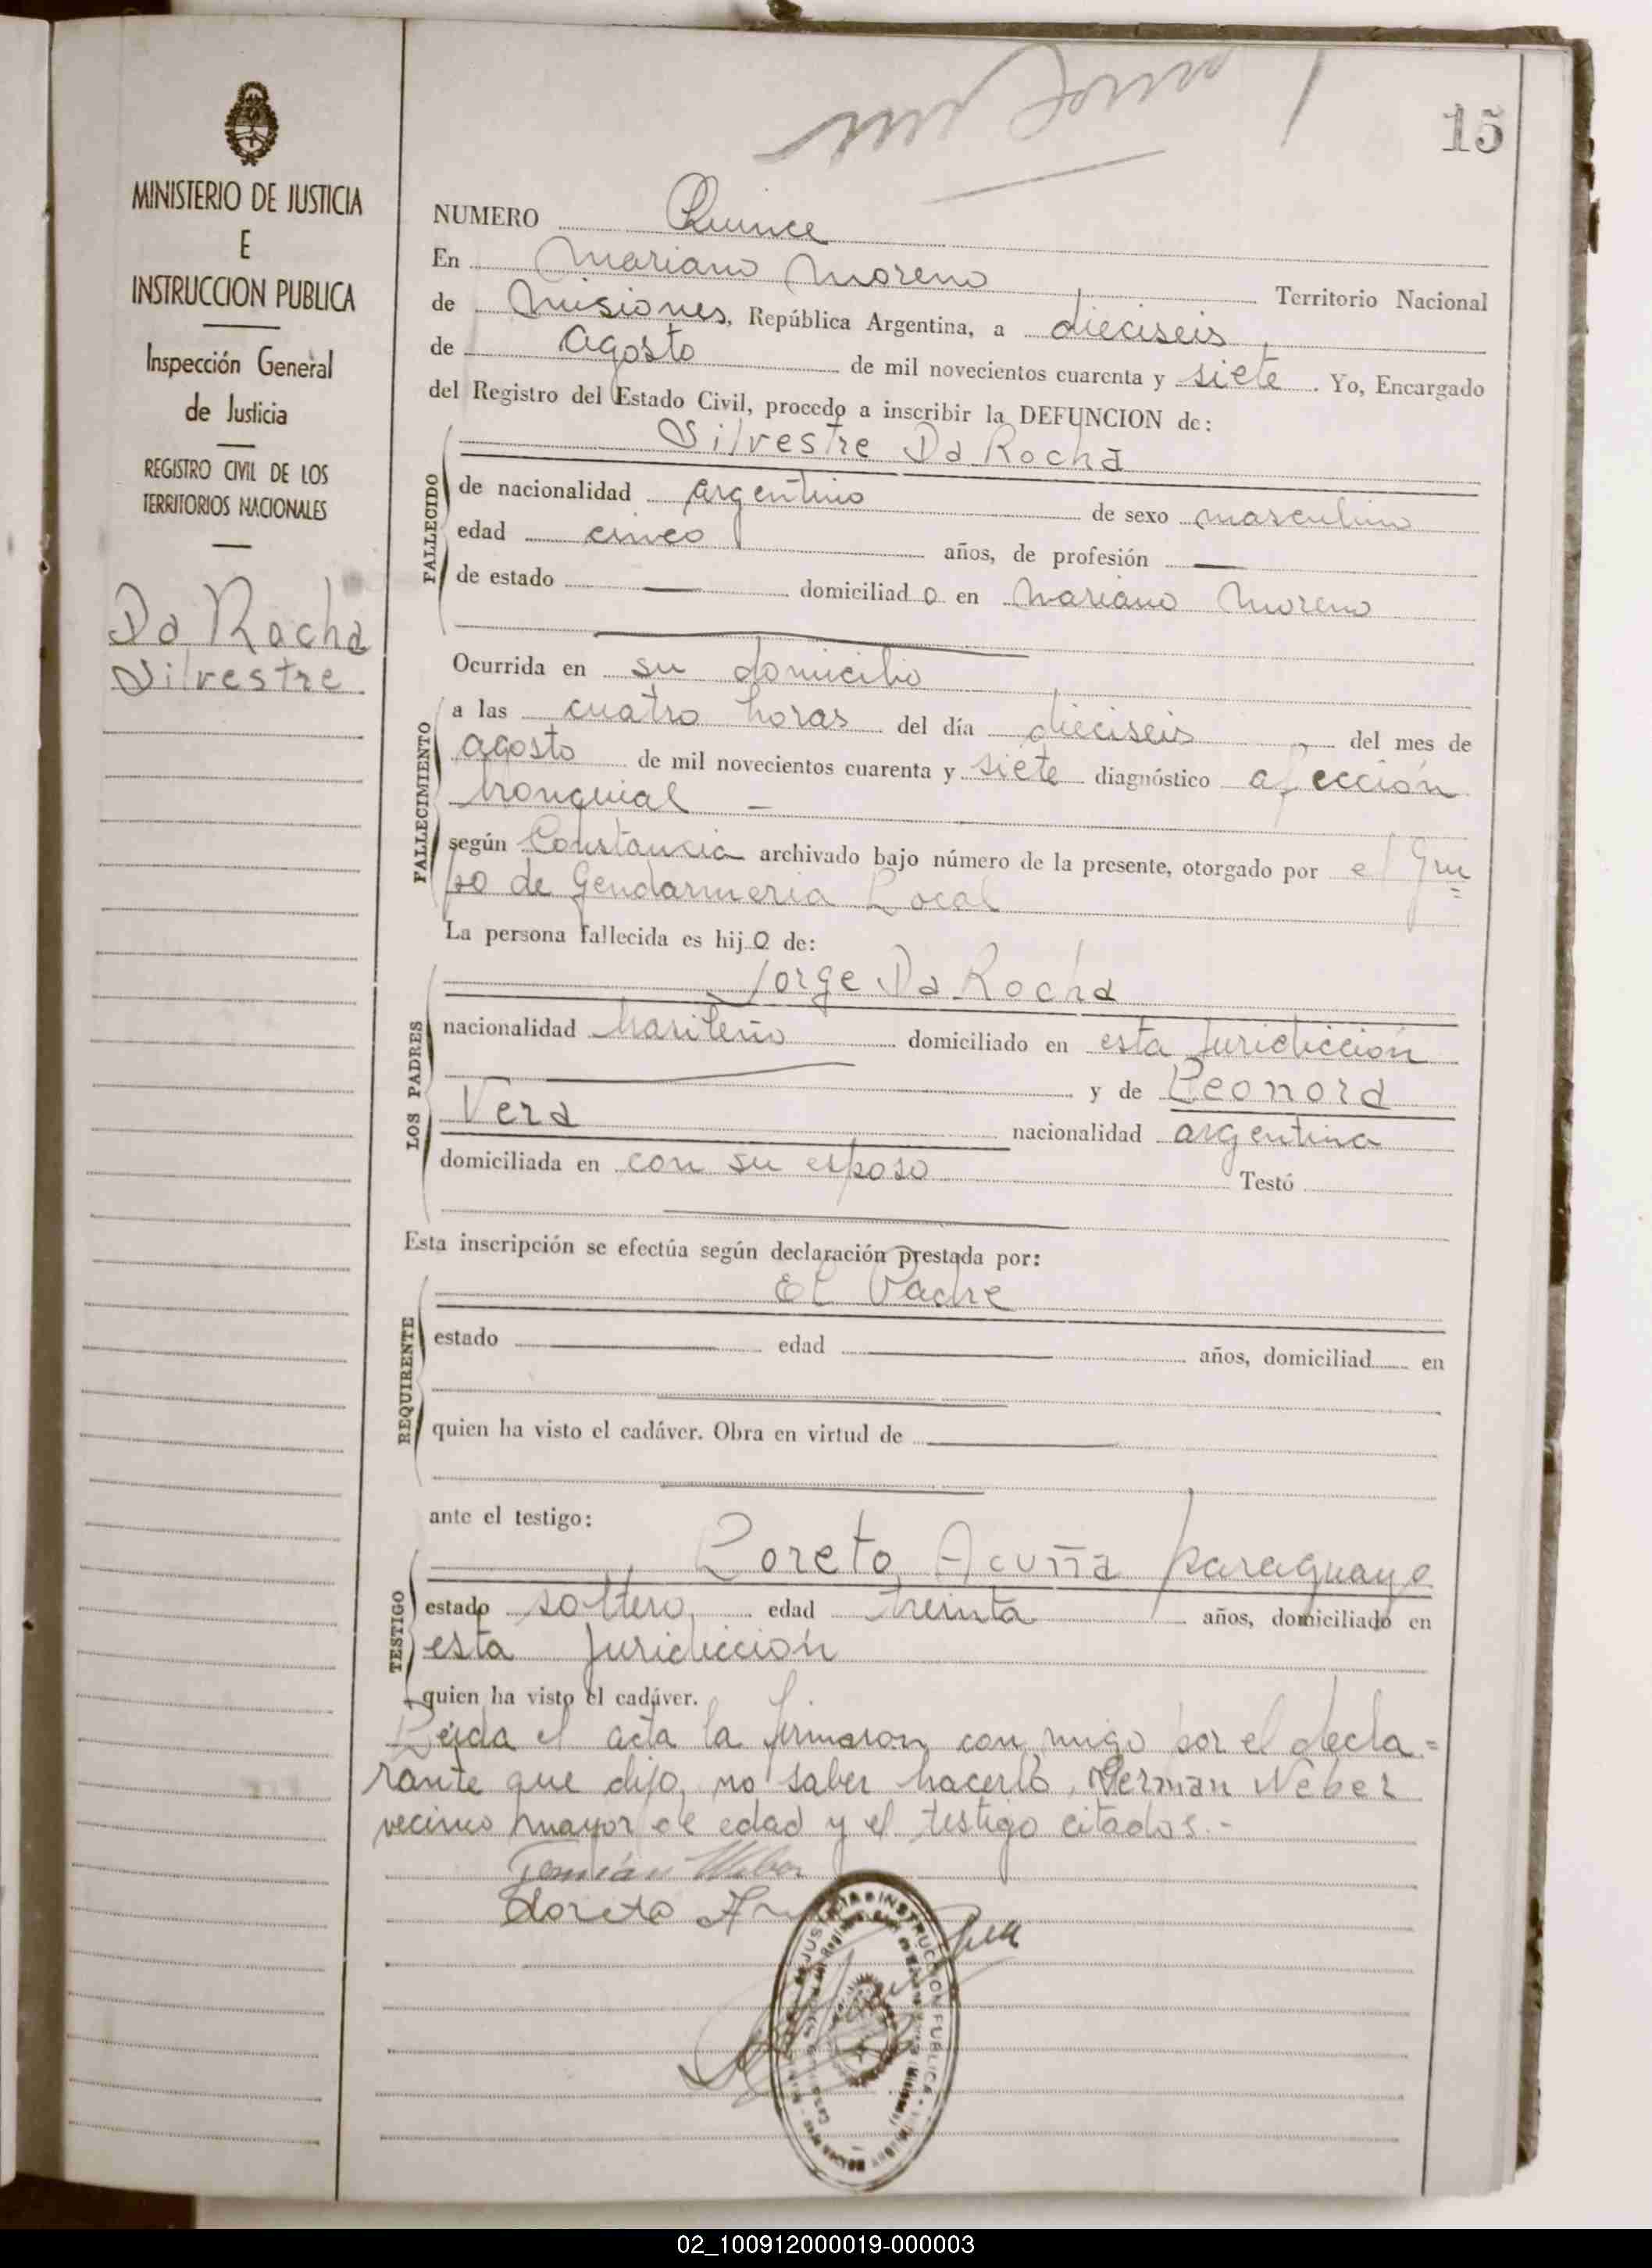 15
MINISTERIO DE JUSTICIA
E
INSTRUCCION PUBLICA
Inspección General
de Justicia
REGISTRO CIVIL DE LOS
TERRITORIOS NACIONALES
Da Rocha
Silvestre
NUMERO Quince
En Mariano Moreno Territorio Nacional
de Misiones, República Argentina, a dieciseis
de agosto de mil novecientos cuarenta y siete. Yo, Encargado
del Registro del Estado Civil, procedo a inscribir la DEFUNCION de:
FALLECIDO
Silvestre Da Rocha
de nacionalidad argentino de sexo masculino
edad cinco años, de profesión —
de estado — domiciliado en Mariano Moreno
Ocurrida en su domicilio
FALLECIMIENTO
a las cuatro horas del día dieciseis del mes de
agosto de mil novecientos cuarenta y siete diagnóstico afección
bronquial —
según Constancia archivado bajo número de la presente, otorgado por el Gru=
po de Gendarmeria Local
La persona fallecida es hijo de:
LOS PADRES
Jorge Da Rocha
nacionalidad domiciliado en esta Juridicción
y de Leonora
Vera nacionalidad argentina
domiciliada en con su esposo Testó
Esta inscripción se efectúa según declaración prestada por:
REQUIRENTE
El Padre
estado — edad — años, domiciliad en
quien ha visto el cadáver. Obra en virtud de —
ante el testigo:
TESTIGO
Loreto Acuña paraguayo
estado soltero edad treinta años, domiciliado en
esta Juridicción
quien ha visto el cadáver.
Leida el acta la firmaron con migo por el decla=
rante que dijo no saber hacerlo, German Weber
vecino mayor de edad y el testigo citados.-
Loreto
JUSTICIA E INSTRUCCION PUBLICA
02_100912000019-000003